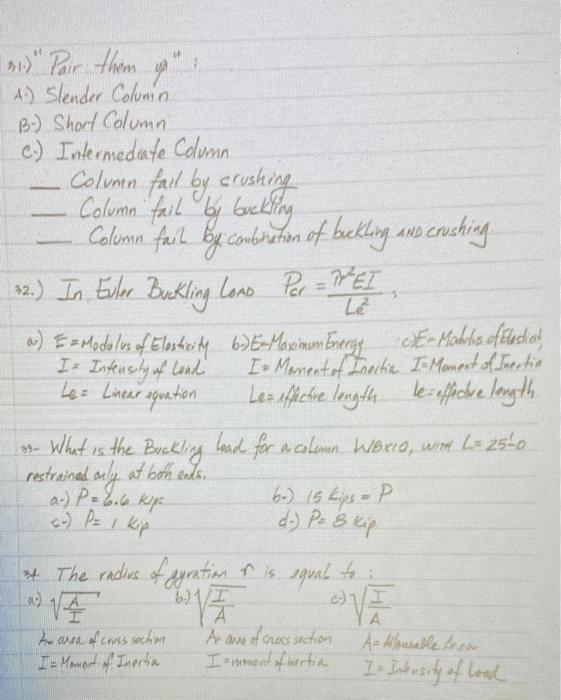 31.) "Pair them up" :
A.) Slender Column
B.) Short Column
C.) Intermediate Column
__ Column fail by crushing
__ Column fail by buckling
__ Column fail by combination of buckling AND crushing
32.) In Euler Buckling LOAD Pcr = π²EI / Le² ,
a.) E = Modulus of Elasticity b.) E = Maximum Energy c.) E = Modulus of Elasticit
I = Intensity of Load I = Moment of Inertia I = Moment of Inertia
Le = Linear equation Le = effective length Le = effective length
33- What is the Buckling load for a column W8x10, WITH L = 25'-0
restrained only at both ends.
a-) P = 6.6 kips b-) 15 kips = P
c-) P = 1 kip d-) P = 8 kip
34 The radius of gyration r is equal to :
a.) √(A/I) b.) √(I/A) c.) √(I/A)
A = area of cross section A = area of cross section A = Allowable Area
I = Moment of Inertia I = moment of inertia I = Intensity of Load